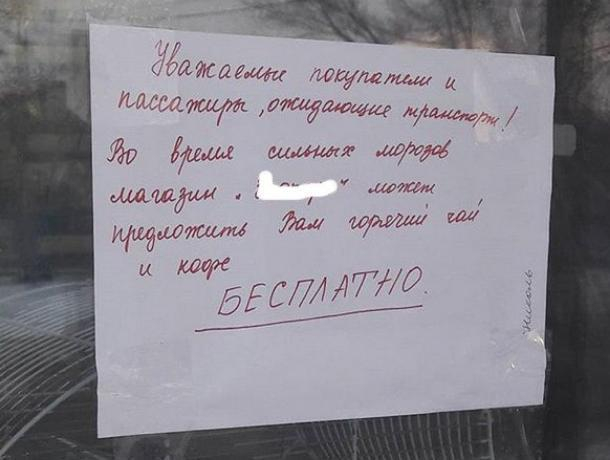 Уважаемые покупатели и
пассажиры, ожидающие транспорт!
Во время сильных морозов
магазин " " может
предложить Вам горячий чай
и кофе
БЕСПЛАТНО.